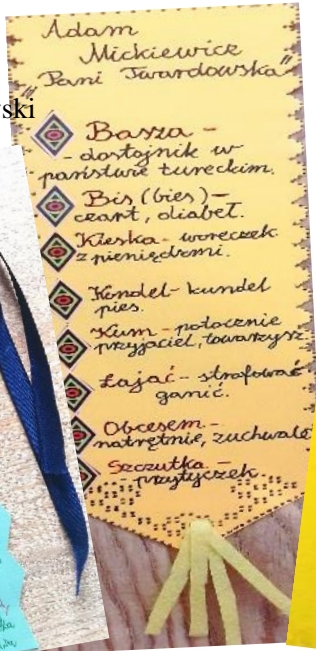 ski
Adam
Mickiewicz
"Pani Twardowska"
Basza -
- dostojnik w
państwie tureckim.
Bis (bies) -
czart, diabeł.
Kieska - woreczek
z pieniędzmi.
Kondel - kundel
pies.
Kum - potocznie
przyjaciel, towarzysz.
Łajać - strofować
ganić.
Obcesem -
natrętnie, zuchwale
Szczutka -
- przytyczek.